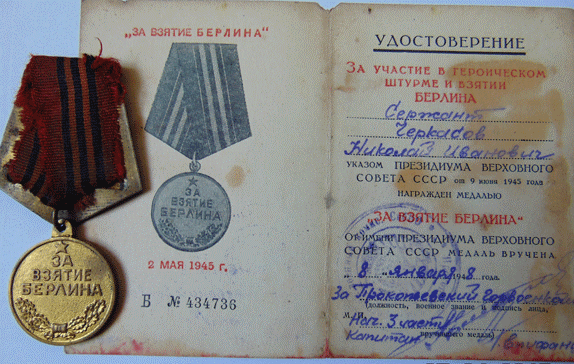 ЗА
ВЗЯТИЕ
БЕРЛИНА
„ЗА ВЗЯТИЕ БЕРЛИНА"
ЗА
ВЗЯТИЕ
БЕРЛИНА
2 МАЯ 1945 г.
Б № 434736
УДОСТОВЕРЕНИЕ
ЗА УЧАСТИЕ В ГЕРОИЧЕСКОМ
ШТУРМЕ И ВЗЯТИИ
БЕРЛИНА
Сержант
Черкасов
Николай Иванович
УКАЗОМ ПРЕЗИДИУМА ВЕРХОВНОГО
СОВЕТА СССР от 9 июня 1945 года
НАГРАЖДЕН МЕДАЛЬЮ
„ЗА ВЗЯТИЕ БЕРЛИНА"
ОТ ИМЕНИ ПРЕЗИДИУМА ВЕРХОВНОГО
СОВЕТА СССР МЕДАЛЬ ВРУЧЕНА
8 января 8 года.
За
(должность, военное звание и подпись лица,
М.П.
Нач. 3 части
вручившего медаль)
Капитан